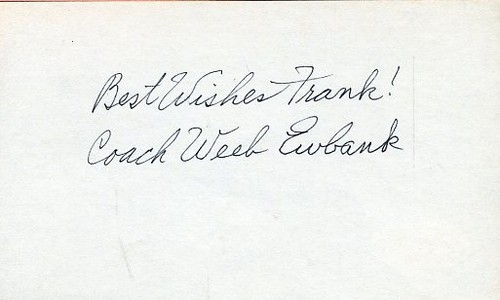 Best Wishes Frank!
Coach Weeb Ewbank